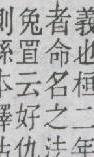 義也桓二年
者命名之法
兔罝云好仇
則孫本釋詁